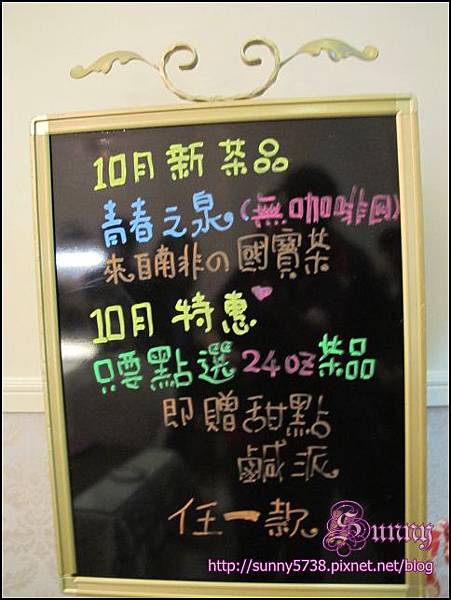 10月新茶品
青春之泉(無咖啡因)
來自南非の國寶茶
10月特惠
只要點選24oz茶品
即贈甜點
鹹派
任一款
Sunny
http://sunny5738.pixnet.net/blog